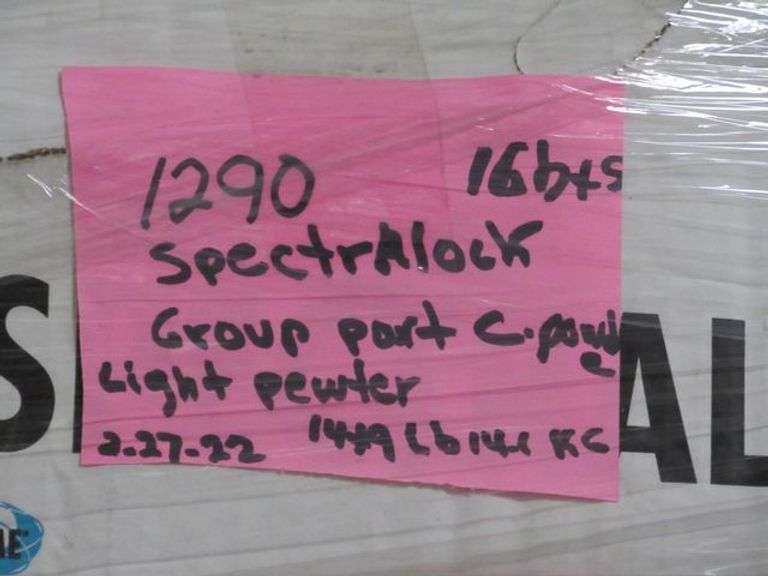 1290 16bts
SpectrAlock
Group part C. powd
e
Light pewter
2-27-22 Lb KC
S AL